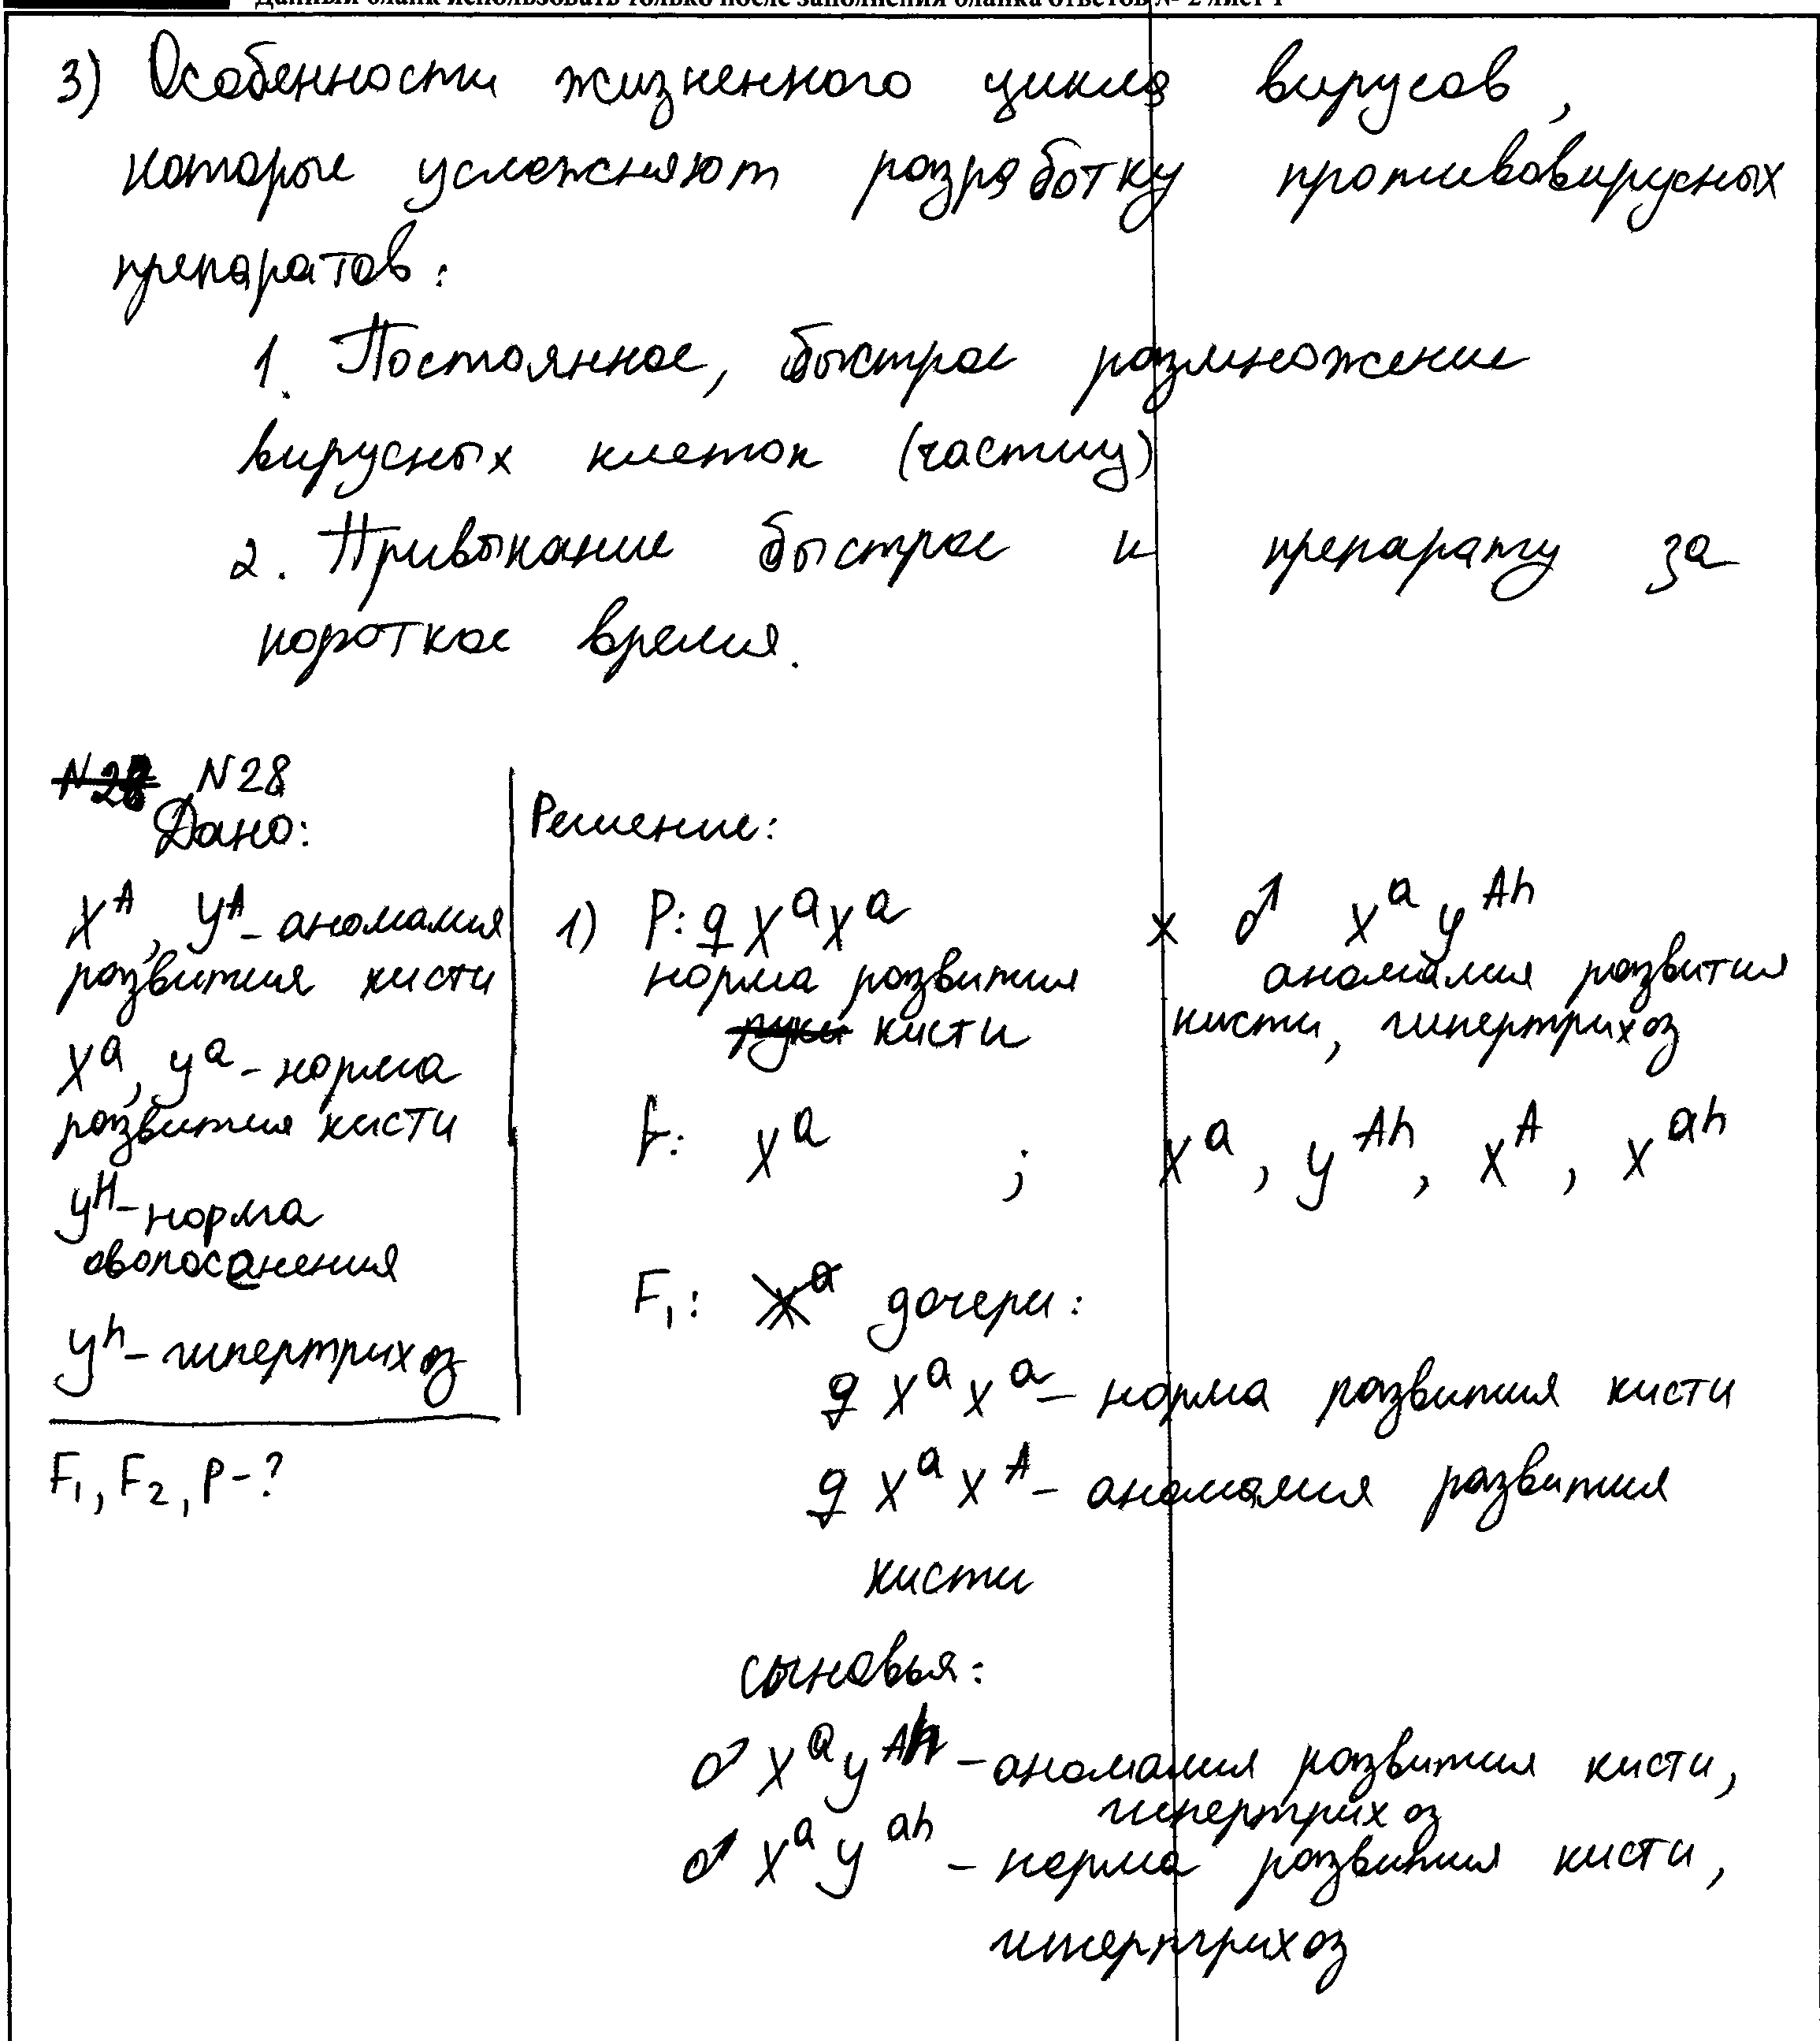 Данный бланк использовать только после заполнения бланка ответов № 2 лист 1
3) Особенности жизненного цикла вирусов,
которые усложняют разработку противовирусных
препаратов:
1. Постоянное, быстрое размножение
вирусных клеток (частиц)
2. Привыкание быстрое к препарату за
короткое время.
N28 N28
Дано:
X^A, y^A - аномалия
развития кисти
X^a, y^a - норма
развития кисти
y^H - норма
оволосанения
y^h - гипертрихоз
F₁, F₂, P - ?
Решение:
1) P: ♀ X^a X^a x ♂ X^a y^Ah
норма развития аномалия развития
руки кисти кисти, гипертрихоз
t: X^a ; X^a, y^Ah, X^A, X^ah
F₁: X^a дочери:
♀ X^a X^a - норма развития кисти
♀ X^a X^A - аномалия развития
кисти
сыновья:
♂ X^a y^Ah - аномалия развития кисти,
гипертрихоз
♂ X^a y^ah - норма развития кисти,
гипертрихоз